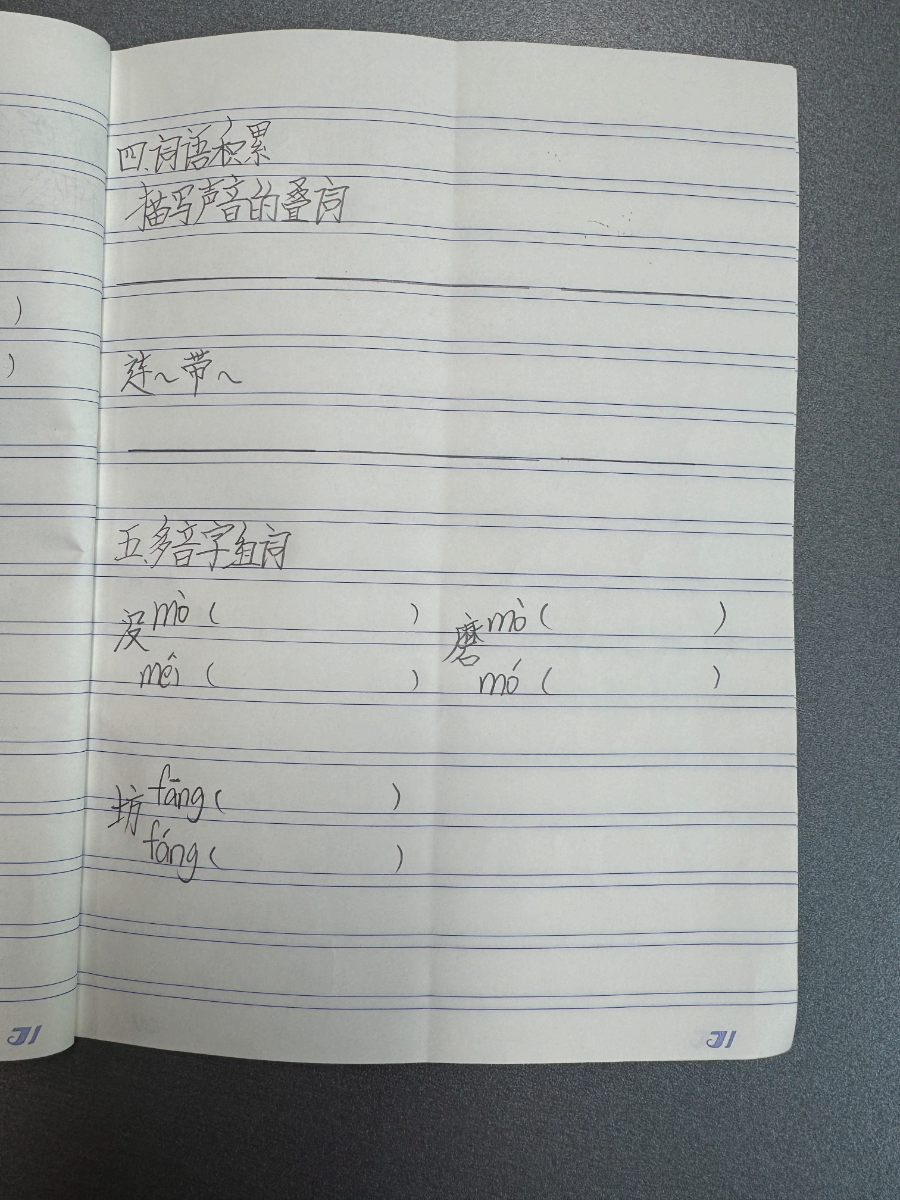 四.词语积累
描写声音的叠词
连~带~
五.多音字组词
没 mò ( ) 磨 mò ( )
méi ( ) mó ( )
坊 fāng ( )
fáng ( )
)
)